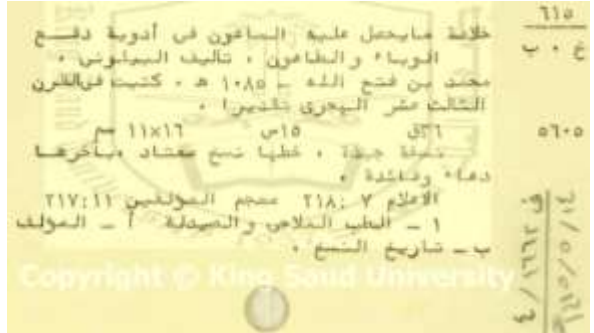 ٦١٥
خ ٠ ب
خلاصة مايحصل عليه الساعون فى أدوية دفع
الوباء والطاعون ، تأليف البيلونى ،
محمد بن فتح الله ـ ١٠٨٥ هـ ٠ كتبت فى القرن
الثالث عشر الهجرى تقديرا ٠
٣٦ق ١٥س ١٦×١١ سم
٥٦٠٥
نسخة جيدة ، خطها نسخ معتاد ،بآخرها
دعاء وفائدة ٠
الاعلام ٧ :٢١٨ معجم المؤلفين ٢١٧:١١
١ ـ الطب العلاجى والصيدلة أ ـ المؤلف
ب ـ تاريخ النسخ ٠
Copyright © King Saud University
ف ١٦٦٢ / ٤